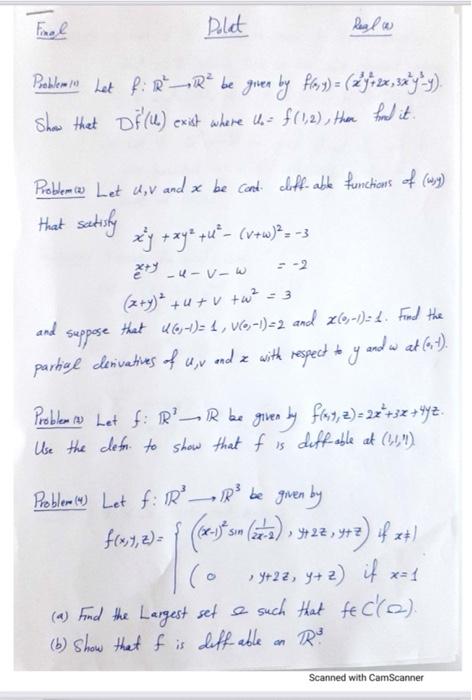 Final Dolat Real (2)
Problem(1) Let f: R² → R² be given by f(x,y) = (x³y²+2x, 3x²y³-y).
Show that Df⁻¹(u₀) exist where u₀ = f(1,2), then find it.
Problem(2) Let u,v and x be cont. diff-able functions of (w,y)
that satisfy x²y + xy² + u² - (v+w)² = -3
e^(x+y) - u - v - w = -2
(x+y)² + u + v + w² = 3
and suppose that u(0,-1)=1, v(0,-1)=2 and x(0,-1)=1. Find the
partial derivatives of u,v and x with respect to y and w at (0,-1).
Problem(3) Let f: R³ → R be given by f(x,y,z) = 2x²+3x+4yz.
Use the defn. to show that f is diff-able at (1,1,1).
Problem(4) Let f: R³ → R³ be given by
f(x,y,z) = { ((x-1)² sin(1/(2x-2)), y+2z, y+z) if x≠1
(0, y+2z, y+z) if x=1
(a) Find the Largest set Ω such that f∈C¹(Ω).
(b) Show that f is diff-able on R³.
Scanned with CamScanner